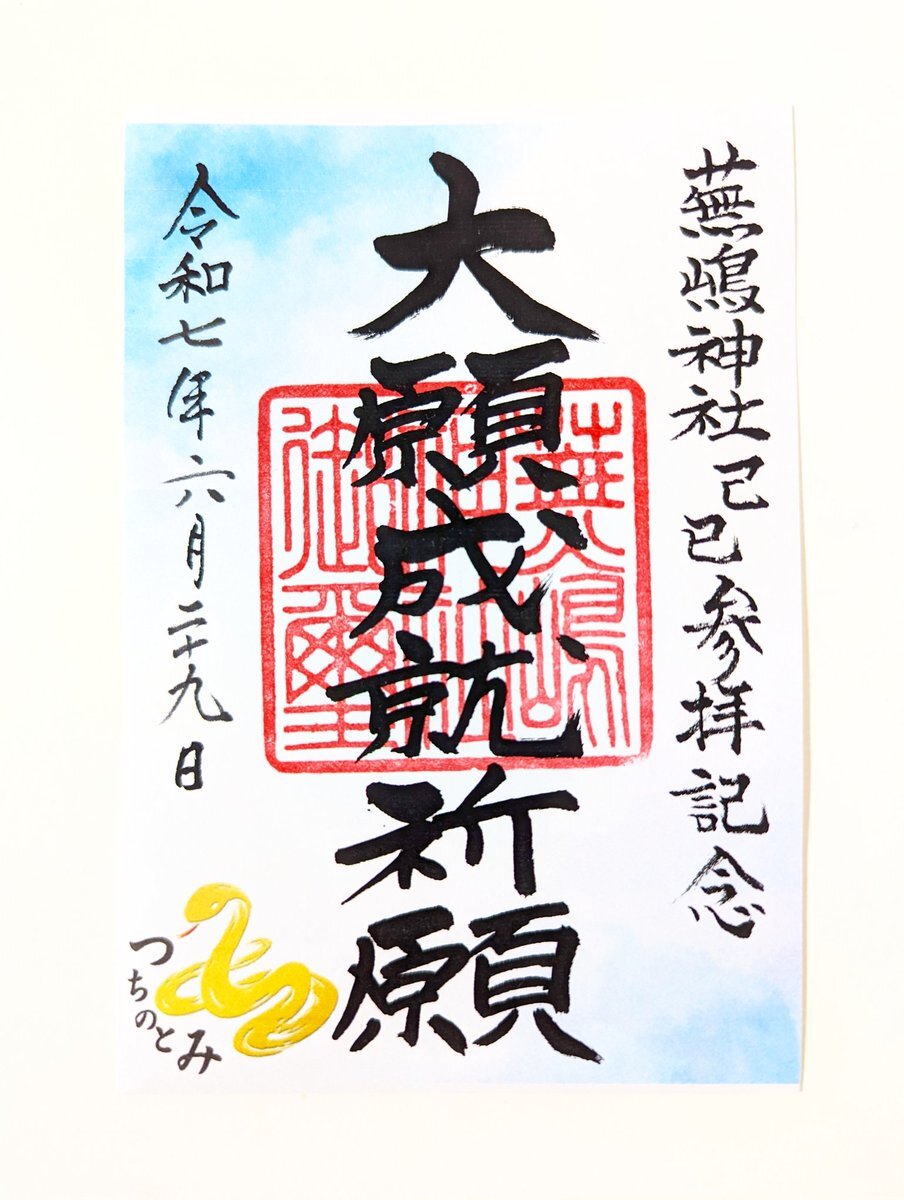 蕪嶋神社己巳参拝記念
大願成就祈願
蕪嶋
神社
御璽
令和七年六月二十九日
つちのとみ